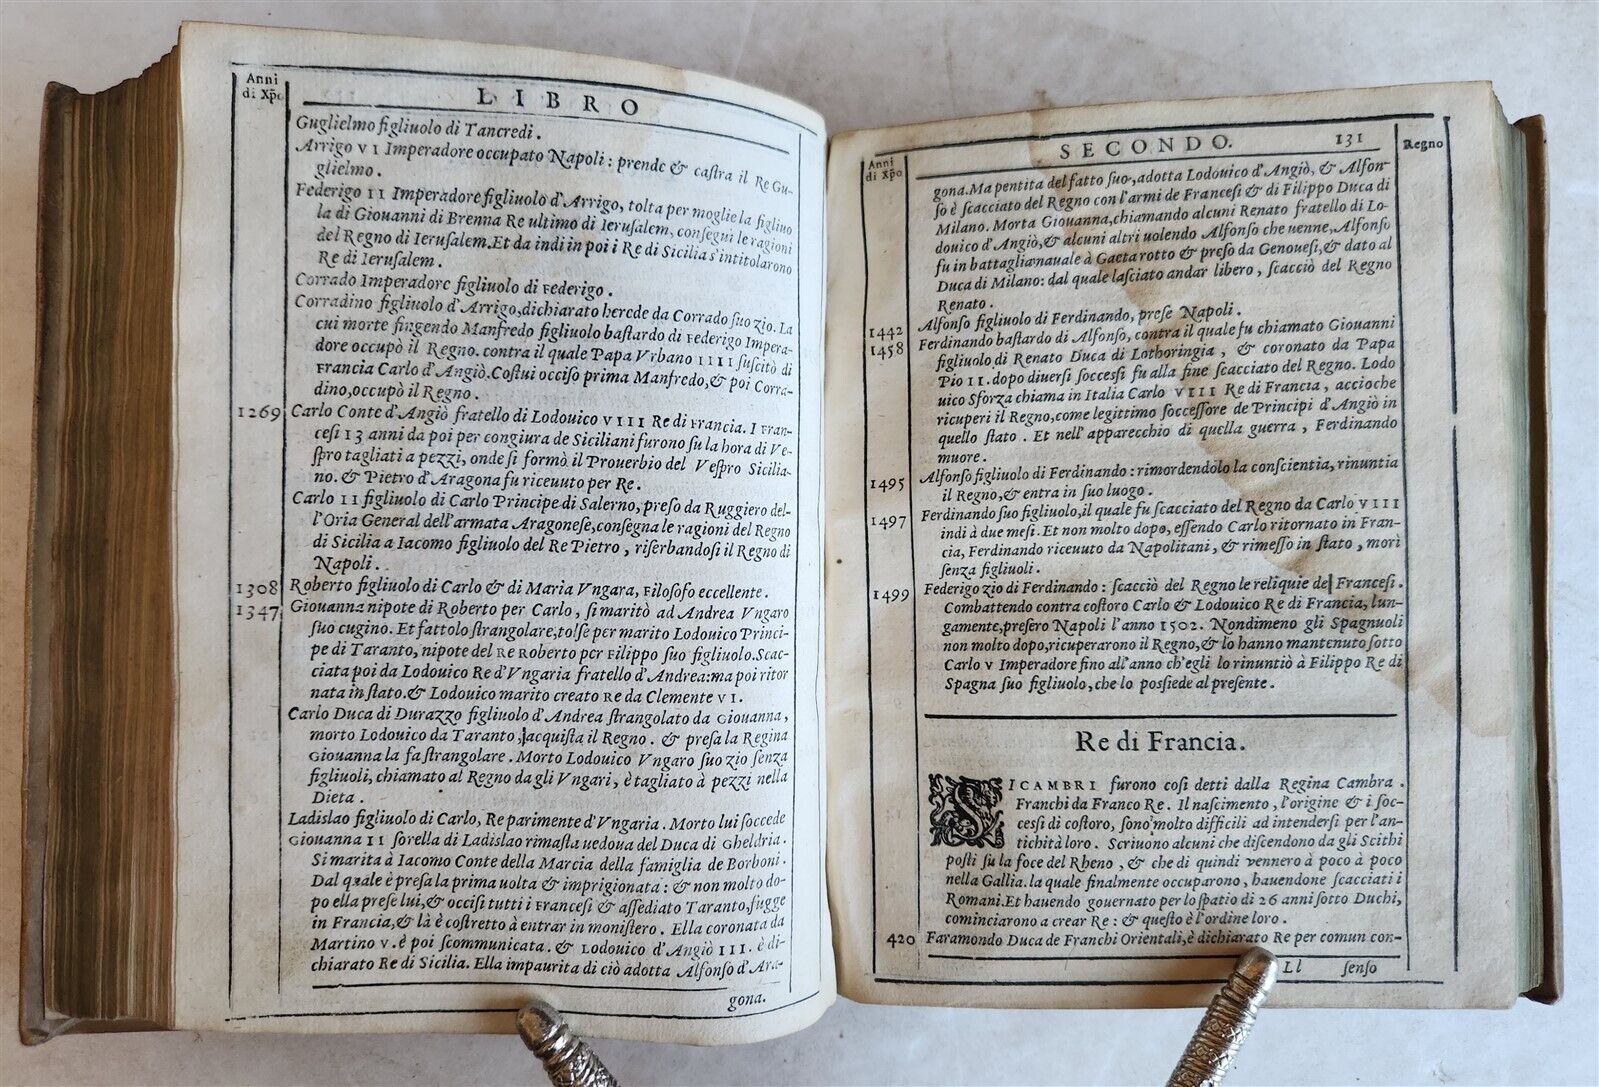 Anni
di Xp̄o
LIBRO
Guglielmo figliuolo di Tancredi.
Arrigo VI Imperadore occupato Napoli: prende & castra il Re Gu-
glielmo.
Federigo II Imperadore figliuolo d'Arrigo, tolta per moglie la figliuo
la di Giouanni di Brenna Re ultimo di Ierusalem, consegui le ragioni
del Regno di Ierusalem. Et da indi in poi i Re di Sicilia s'intitolarono
Re di Ierusalem.
Corrado Imperadore figliuolo di Federigo.
Corradino figliuolo d'Arrigo, dichiarato herede da Corrado suo zio. La
cui morte fingendo Manfredo figliuolo bastardo di Federigo Impera-
dore occupò il Regno. contra il quale Papa Vrbano IIII suscitò di
Francia Carlo d'Angiò. Costui occiso prima Manfredo, & poi Corra-
dino, occupò il Regno.
1269 Carlo Conte d'Angiò fratello di Lodouico VIII Re di Francia. I Fran-
cesi 13 anni da poi per congiura de Siciliani furono su la hora di Ve-
spro tagliati a pezzi, onde si formò il Prouerbio del Vespro Sicilia-
no. & Pietro d'Aragona fu riceuuto per Re.
Carlo II figliuolo di Carlo Principe di Salerno, preso da Ruggiero del-
l'Oria General dell'armata Aragonese, consegna le ragioni del Regno
di Sicilia a Iacomo figliuolo del Re Pietro, riserbandosi il Regno di
Napoli.
1308 Roberto figliuolo di Carlo & di Maria Vngara, Filosofo eccellente.
1347 Giouanna nipote di Roberto per Carlo, si maritò ad Andrea Vngaro
suo cugino. Et fattolo strangolare, tolse per marito Lodouico Princi-
pe di Taranto, nipote del Re Roberto per Filippo suo figliuolo. Scac-
ciata poi da Lodouico Re d'Vngaria fratello d'Andrea: ma poi ritor
nata in stato. & Lodouico marito creato Re da Clemente VI.
Carlo Duca di Durazzo figliuolo d'Andrea strangolato da Giouanna,
morto Lodouico da Taranto, acquista il Regno. & presa la Regina
Giouanna la fa strangolare. Morto Lodouico Vngaro suo zio senza
figliuoli, chiamato al Regno da gli Vngari, è tagliato à pezzi nella
Dieta.
Ladislao figliuolo di Carlo, Re parimente d'Vngaria. Morto lui soccede
Giouanna II sorella di Ladislao rimasta uedoua del Duca di Gheldria.
Si marita à Iacomo Conte della Marcia della famiglia de Borboni.
Dal quale è presa la prima uolta & imprigionata: & non molto do-
po ella prese lui, & occisi tutti i Francesi & assediato Taranto, fugge
in Francia, & là è costretto à entrar in monistero. Ella coronata da
Martino V. è poi scommunicata. & Lodouico d'Angiò III. è di-
chiarato Re di Sicilia. Ella impaurita di ciò adotta Alfonso d'Ara-
gona.
Anni
di Xp̄o
SECONDO. 131
Regno
gona. Ma pentita del fatto suo, adotta Lodouico d'Angiò, & Alfon-
so è scacciato del Regno con l'armi de Francesi & di Filippo Duca di
Milano. Morta Giouanna, chiamando alcuni Renato fratello di Lo-
douico d'Angiò, & alcuni altri uolendo Alfonso che uenne, Alfonso
fu in battaglia nauale à Gaeta rotto & preso da Genouesi, & dato al
Duca di Milano: dal quale lasciato andar libero, scacciò del Regno
Renato.
1442 Alfonso figliuolo di Ferdinando, prese Napoli.
1458 Ferdinando bastardo di Alfonso, contra il quale fu chiamato Giouanni
figliuolo di Renato Duca di Lothoringia, & coronato da Papa
Pio II. dopo diuersi soccessi fu alla fine scacciato del Regno. Lodo
uico Sforza chiama in Italia Carlo VIII Re di Francia, accioche
ricuperi il Regno, come legittimo soccessore de Principi d'Angiò in
quello stato. Et nell'apparecchio di quella guerra, Ferdinando
muore.
1495 Alfonso figliuolo di Ferdinando: rimordendolo la conscientia, rinuntia
il Regno, & entra in suo luogo.
1497 Ferdinando suo figliuolo, il quale fu scacciato del Regno da Carlo VIII
indi à due mesi. Et non molto dopo, essendo Carlo ritornato in Fran-
cia, Ferdinando riceuuto da Napolitani, & rimesso in stato, morì
senza figliuoli.
1499 Federigo zio di Ferdinando: scacciò del Regno le reliquie de Francesi.
Combattendo contra costoro Carlo & Lodouico Re di Francia, lun-
gamente, presero Napoli l'anno 1502. Nondimeno gli Spagnuoli
non molto dopo, ricuperarono il Regno, & lo hanno mantenuto sotto
Carlo V Imperadore fino all'anno ch'egli lo rinuntiò à Filippo Re di
Spagna suo figliuolo, che lo possiede al presente.
Re di Francia.
SICAMBRI furono cosi detti dalla Regina Cambra.
Franchi da Franco Re. Il nascimento, l'origine & i soc-
cessi di costoro, sono molto difficili ad intendersi per l'an-
tichità loro. Scriuono alcuni che discendono da gli Scithi
posti su la foce del Rheno, & che di quindi vennero à poco à poco
nella Gallia. la quale finalmente occuparono, hauendone scacciati i
Romani. Et hauendo gouernato per lo spatio di 26 anni sotto Duchi,
cominciarono a crear Re: & questo è l'ordine loro.
420 Faramondo Duca de Franchi Orientali, è dichiarato Re per comun con-
Ll senso